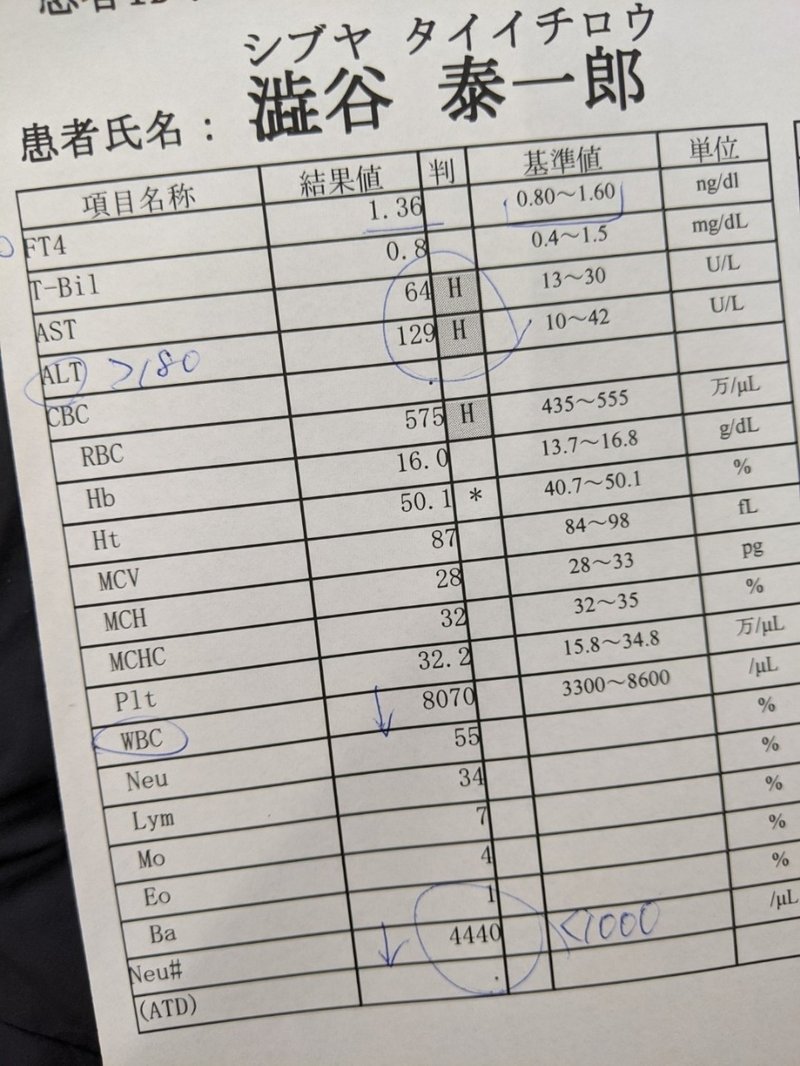 シブヤ タイイチロウ
患者氏名： 澁谷 泰一郎
項目名称 結果値 判 基準値 単位
FT4 1.36 0.80～1.60 ng/dl
T-Bil 0.8 0.4～1.5 mg/dL
AST 64 H 13～30 U/L
ALT >180 129 H 10～42 U/L
CBC .
RBC 575 H 435～555 万/μL
Hb 16.0 13.7～16.8 g/dL
Ht 50.1 * 40.7～50.1 %
MCV 87 84～98 fL
MCH 28 28～33 pg
MCHC 32 32～35 %
Plt 32.2 15.8～34.8 万/μL
WBC ↓ 8070 3300～8600 /μL
Neu 55 %
Lym 34 %
Mo 7 %
Eo 4 %
Ba 1 %
Neu# ↓ 4440 <1000 /μL
(ATD) .